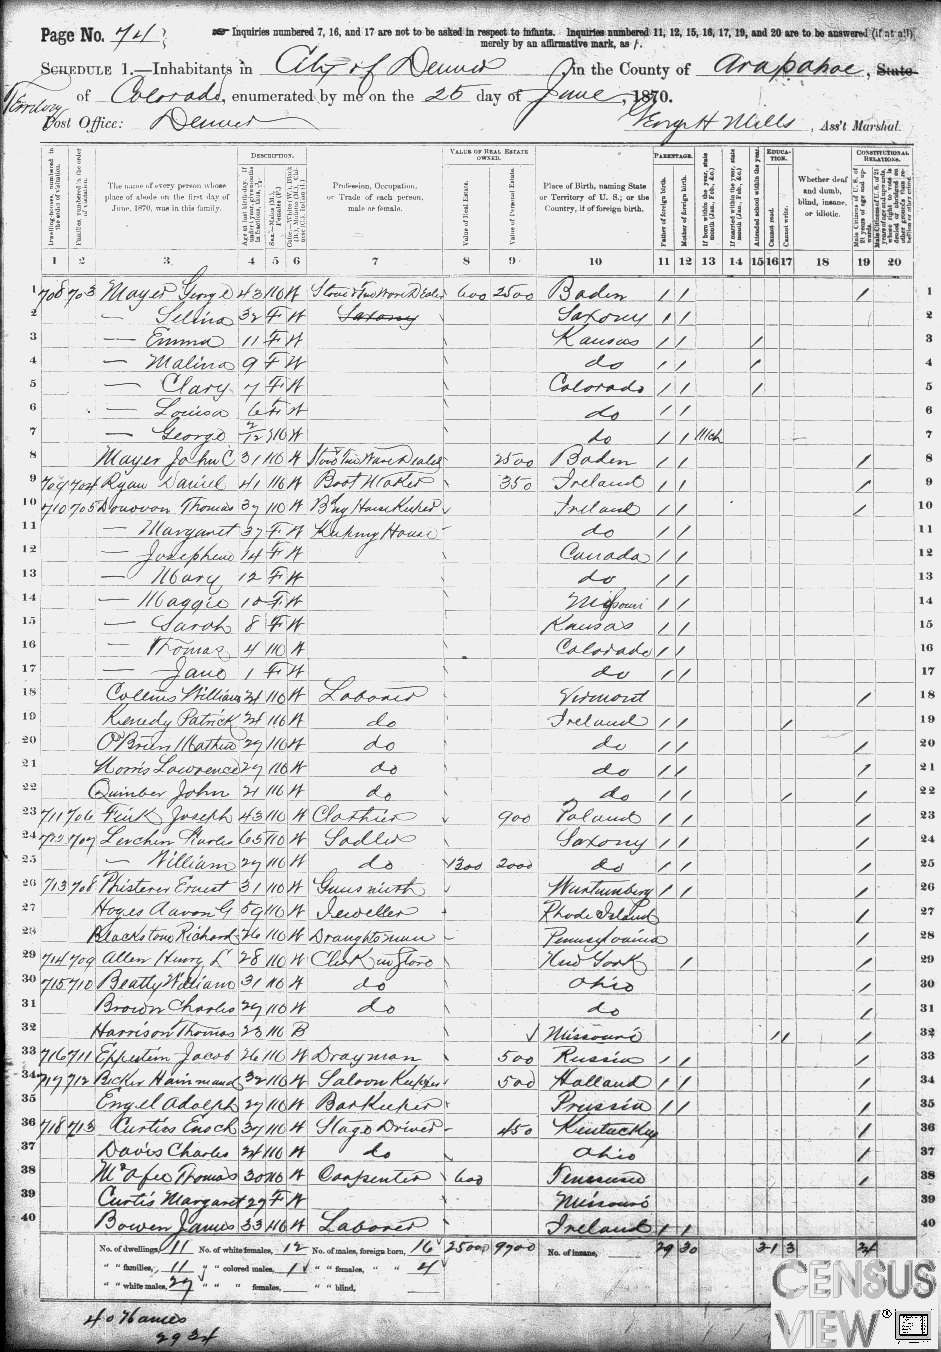 Page No. 74
Inquiries numbered 7, 16, and 17 are not to be asked in respect to infants. Inquiries numbered 11, 12, 15, 16, 17, 19, and 20 are to be answered (if at all)
merely by an affirmative mark, as /.
SCHEDULE 1.—Inhabitants in City of Denver, in the County of Arapahoe, State
Territory of Colorado, enumerated by me on the 25 day of June, 1870.
Post Office: Denver George H Mills, Ass't Marshal.
DESCRIPTION. VALUE OF REAL ESTATE OWNED. PARENTAGE. EDUCATION. CONSTITUTIONAL RELATIONS.
Dwelling-houses, numbered in the order of visitation.
Families, numbered in the order of visitation.
The name of every person whose place of abode on the first day of June, 1870, was in this family.
Profession, Occupation, or Trade of each person, male or female.
Value of Real Estate.
Value of Personal Estate.
Place of Birth, naming State or Territory of U. S.; or the Country, if of foreign birth.
Father of foreign birth.
Mother of foreign birth.
If born within the year, state month (Jan., Feb., &c.)
If married within the year, state month (Jan., Feb., &c.)
Attended school within the year.
Cannot read.
Cannot write.
Whether deaf and dumb, blind, insane, or idiotic.
1 2 3 4 5 6 7 8 9 10 11 12 13 14 15 16 17 18 19 20
1 708 703 Mayer George 43 M W Stove & Tin Ware Dealer 600 2500 Baden / / / 1
2 — Selina 32 F W Saxony Saxony / / 2
3 — Emma 11 F W Kansas / / / 3
4 — Malina 9 F W do / / / 4
5 — Clary 7 F W Colorado / / / 5
6 — Louisa 6 F W do / / 6
7 — George 2/12 M W do / / Mch 7
8 Mayer John C 31 M W Stove & Tin Ware Dealer 2500 Baden / / / 8
9 709 704 Ryan Daniel 41 M W Boot Maker 350 Ireland / / / 9
10 710 705 Donovon Thomas 37 M W Bdg House Keeper Ireland / / / 10
11 — Margaret 37 F W Keeping House do / / 11
12 — Josephine 14 F W Canada / / 12
13 — Mary 12 F W do / / 13
14 — Maggie 10 F W Missouri / / 14
15 — Sarah 8 F W Kansas / / 15
16 — Thomas 4 M W Colorado / / 16
17 — Jane 1 F W do / / 17
18 Collins William 24 M W Laborer Vermont / 18
19 Kenedy Patrick 24 M W do Ireland / / / 19
20 O'Brien Mathew 29 M W do do / / / 20
21 Norris Lawrence 29 M W do do / / / 21
22 Quimber John 21 M W do do / / / / 22
23 711 706 Fink Joseph 43 M W Clothier 900 Poland / / / 23
24 712 707 Lerchen Charles 65 M W Sadler Saxony / / / 24
25 — William 29 M W do 1300 2000 do / / / 25
26 713 708 Phisterer Ernest 31 M W Gunsmith Wurtumberg / / / 26
27 Hoyes Aaron G 59 M W Jeweller Rhode Island / 27
28 Blackstone Richard 26 M W Draughtsman Pennsylvania / 28
29 714 709 Allen Henry L 28 M W Clerk in Store New York / / 29
30 715 710 Beatty William 31 M W do Ohio / 30
31 Brown Charles 29 M W do do / 31
32 Harrison Thomas 23 M B Missouri / / / 32
33 716 711 Eppstein Jacob 26 M W Drayman 500 Russia / / / 33
34 717 712 Bicker Hammand 32 M W Saloon Keeper 500 Holland / / / 34
35 Engel Adolph 27 M W Bar Keeper Prussia / / / 35
36 718 713 Curtis Enoch 37 M W Stage Driver 450 Kentucky / 36
37 Davis Charles 24 M W do Ohio / 37
38 McAfee Thomas 30 M W Carpenter 600 Tennessee / 38
39 Curtis Margaret 27 F W Missouri 39
40 Bowen James 33 M W Laborer Ireland / / 40
No. of dwellings, 11 No. of white females, 12 No. of males, foreign born, 16 2500 9700 No. of insane, 29 30 3 24
" " families, 11 " " colored males, 1 " " females, " " 4
" " white males, 27 " " " females, " " blind,
40 Names
CENSUS
VIEW